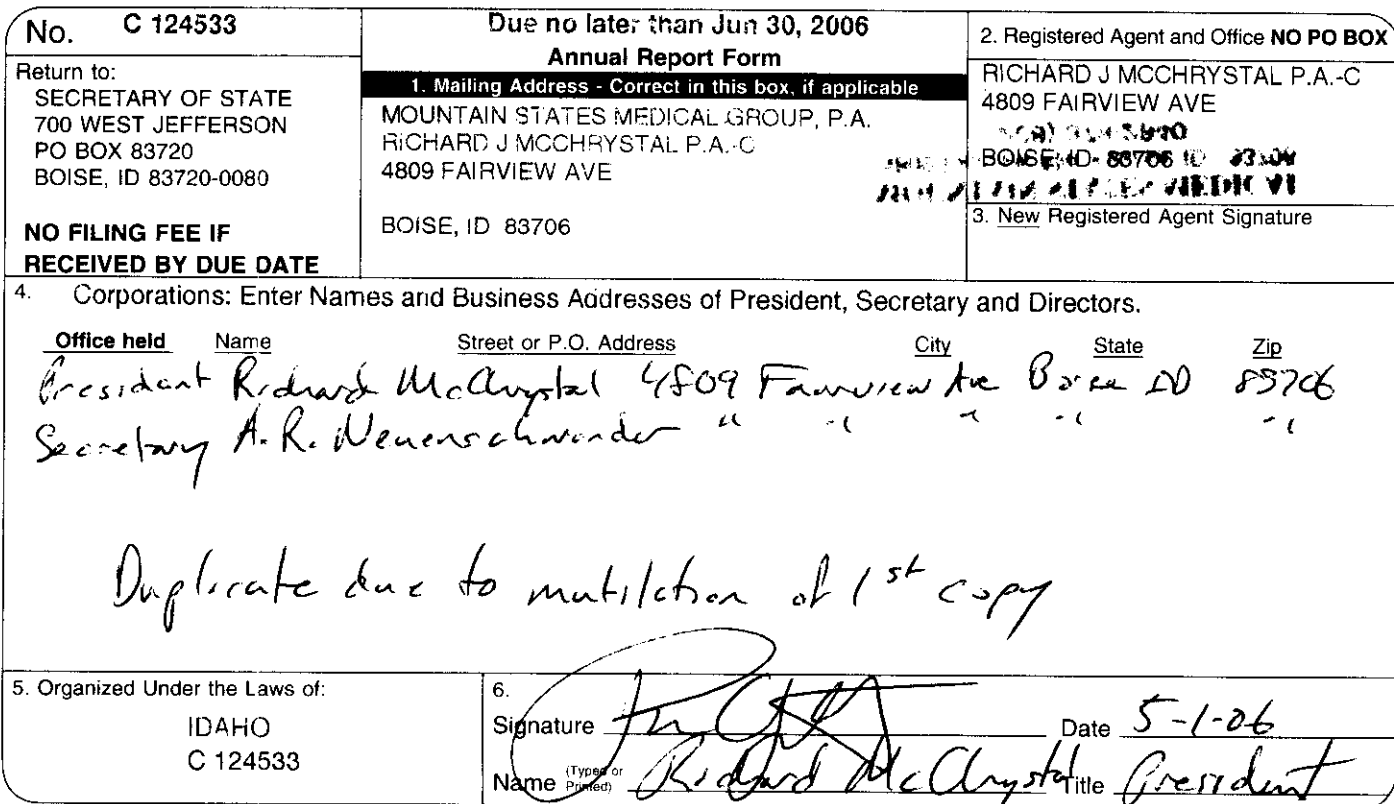 No. C 124533
Return to:
SECRETARY OF STATE
700 WEST JEFFERSON
PO BOX 83720
BOISE, ID 83720-0080
NO FILING FEE IF
RECEIVED BY DUE DATE
Due no later than Jun 30, 2006
Annual Report Form
1. Mailing Address - Correct in this box, if applicable
MOUNTAIN STATES MEDICAL GROUP, P.A.
RICHARD J MCCHRYSTAL P.A.-C
4809 FAIRVIEW AVE
BOISE, ID 83706
2. Registered Agent and Office NO PO BOX
RICHARD J MCCHRYSTAL P.A.-C
4809 FAIRVIEW AVE
BOISE, ID 83706
3. New Registered Agent Signature
4. Corporations: Enter Names and Business Addresses of President, Secretary and Directors.
Office held Name Street or P.O. Address City State Zip
President Richard McChrystal 4809 Fairview Ave Boise ID 83706
Secretary A. R. Neuenschwander " " " " "
Duplicate due to mutilation of 1st copy
5. Organized Under the Laws of:
IDAHO
C 124533
6.
Signature Date 5-1-06
Name (Typed or Printed) Richard McChrystal Title President